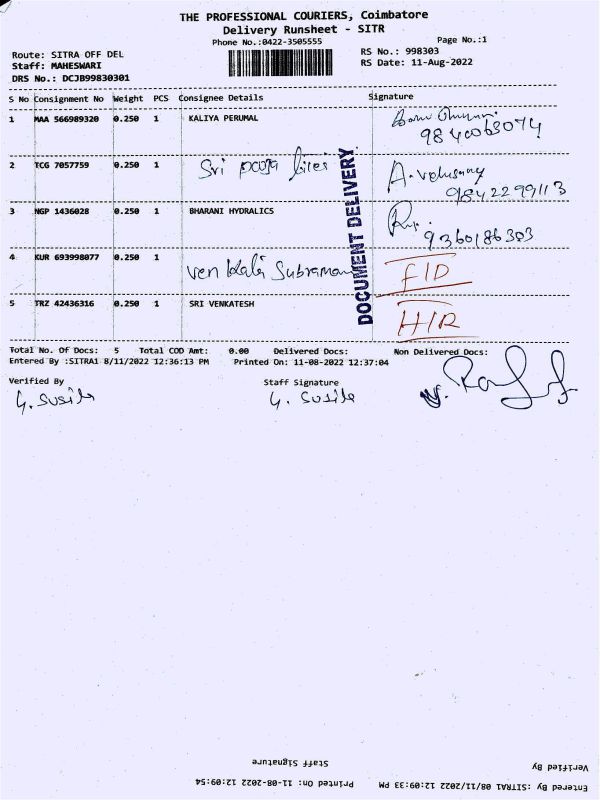 THE PROFESSIONAL COURIERS, Coimbatore
Delivery Runsheet - SITR
Phone No.:0422-3505555
Page No.:1
Route: SITRA OFF DEL
Staff: MAHESWARI
DRS No.: DCJB99830301
RS No.: 998303
RS Date: 11-Aug-2022
S No Consignment No Weight PCS Consignee Details Signature
1 MAA 566989320 0.250 1 KALIYA PERUMAL
9840063074
2 TCG 7057759 0.250 1 Sri pooja
A. Velusamy
9842299113
3 NGP 1436028 0.250 1 BHARANI HYDRALICS
9360186383
4 KUR 693998077 0.250 1 Venkata Subraman FID
5 TRZ 42436316 0.250 1 SRI VENKATESH HIR
DOCUMENT DELIVERY
Total No. Of Docs: 5 Total COD Amt: 0.00 Delivered Docs: Non Delivered Docs:
Entered By :SITRA1 8/11/2022 12:36:13 PM Printed On: 11-08-2022 12:37:04
Verified By Staff Signature
G. Susila G. Susila
Staff Signature
Verified By
Entered By :SITRA1 08/11/2022 12:09:33 PM Printed On: 11-08-2022 12:09:54